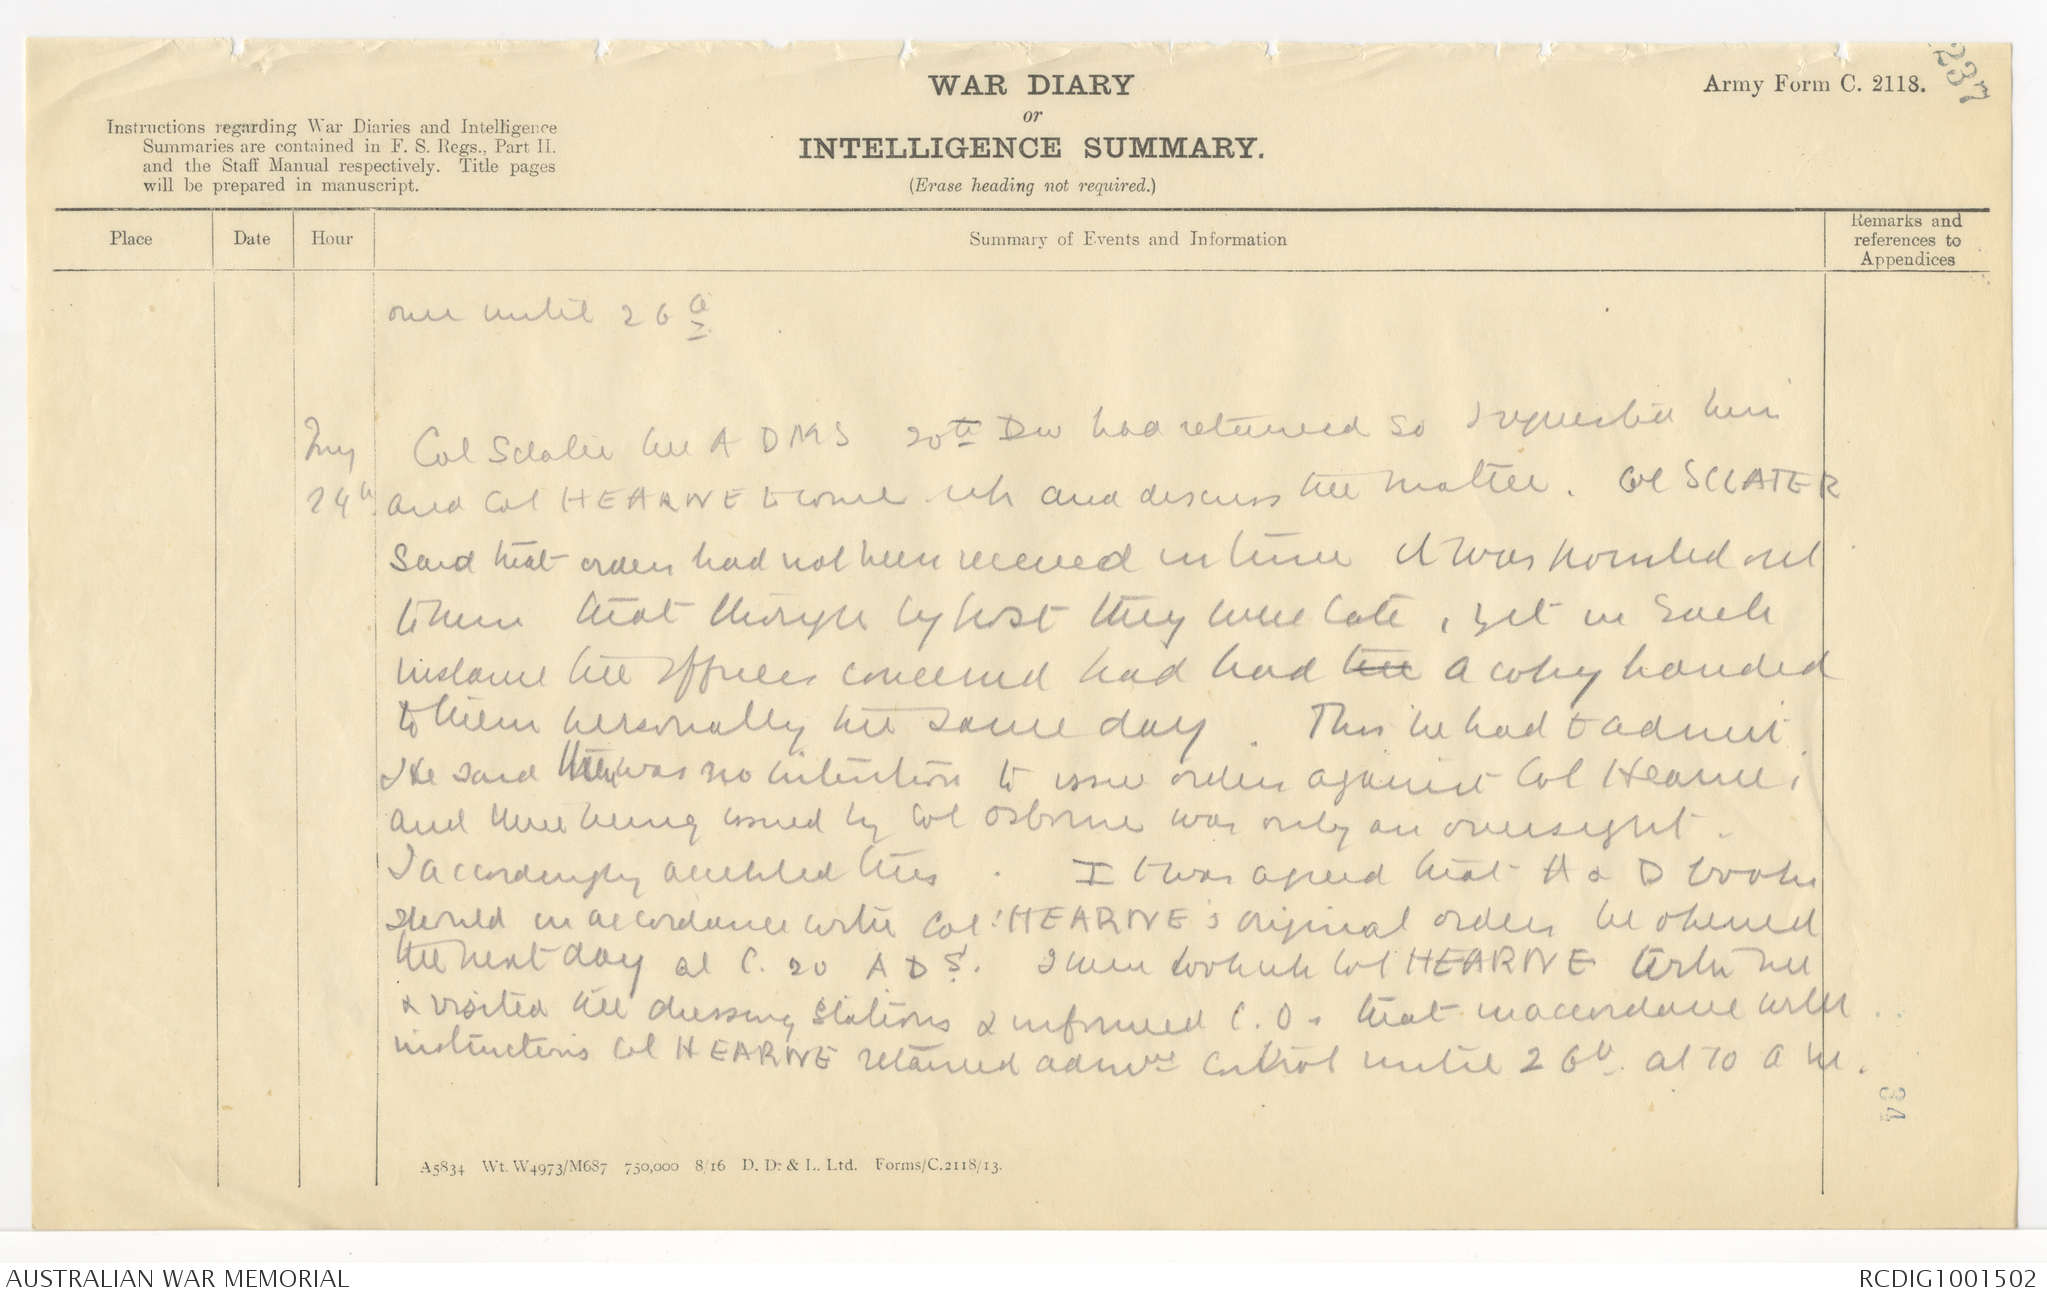 237
WAR DIARY
or
INTELLIGENCE SUMMARY.
(Erase heading not required.)
Army Form C. 2118.
Instructions regarding War Diaries and Intelligence
Summaries are contained in F. S. Regs., Part II.
and the Staff Manual respectively. Title pages
will be prepared in manuscript.
Place
Date
Hour
Summary of Events and Information
Remarks and
references to
Appendices
over until 26th
24th Col Sclater the A D M S 20th Div had returned so I requested him
and Col HEARNE to come up and discuss the matter. Col SCLATER
said that orders had not been received in time it was pointed out
to him that though by post they were late, yet in each
instance the officers concerned had had the a copy handed
to them personally the same day. This he had to admit.
He said there was no intention to issue orders against Col Hearne,
and these being issued by Col Osborne was only an oversight.
I accordingly accepted this. It was agreed that A & D books
should in accordance with Col HEARNE's original orders be opened
the next day at C. 20 A D S. I then took Col HEARNE with me
& visited the dressing stations & informed C.Os that in accordance with
instructions Col HEARNE retained admve control until 26th at 10 a m.
34
A5834 Wt. W4973/M687 750,000 8/16 D. D. & L. Ltd. Forms/C.2118/13.
AUSTRALIAN WAR MEMORIAL
RCDIG1001502